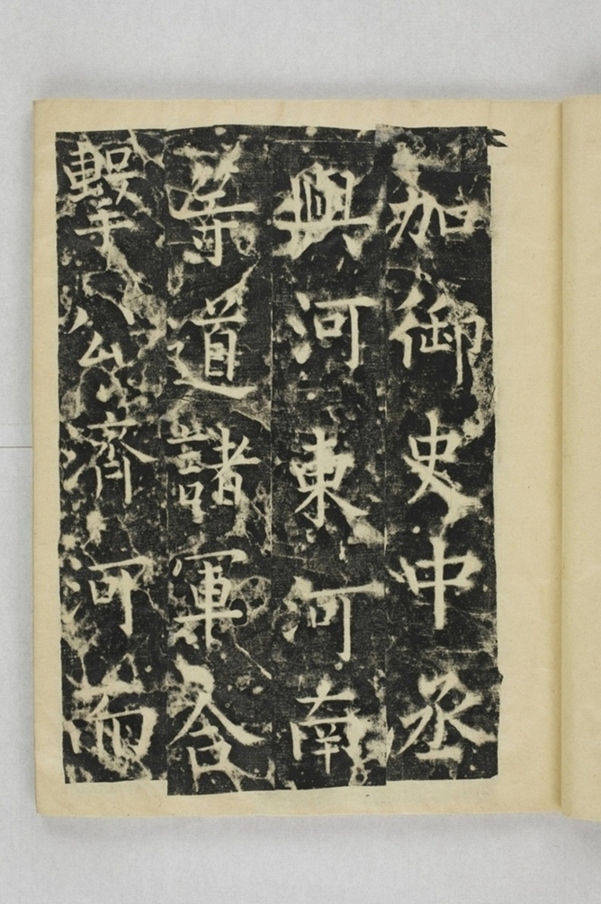 加御史中丞
與河東河南
等道諸軍合
擊公濟河而